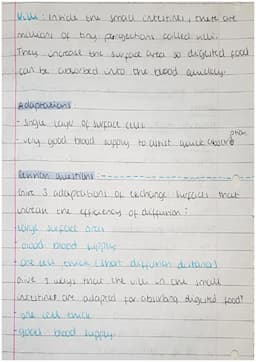 Villi: Inside the small intestines, there are
millions of tiny projections called villi.
They increase the surface area so digested food
can be absorbed into the blood quickly.
Adaptations
- Single layer of surface cells
- very good blood supply to assist quick absorption
Common questions:
Give 3 adaptations of exchange surfaces that
increase the efficiency of diffusion:
- large surface area
- Good blood supply
- one cell thick (short diffusion distance)
Give 2 ways that the villi in the small
intestines are adapted for absorbing digested food?
- one cell thick
- good blood supply